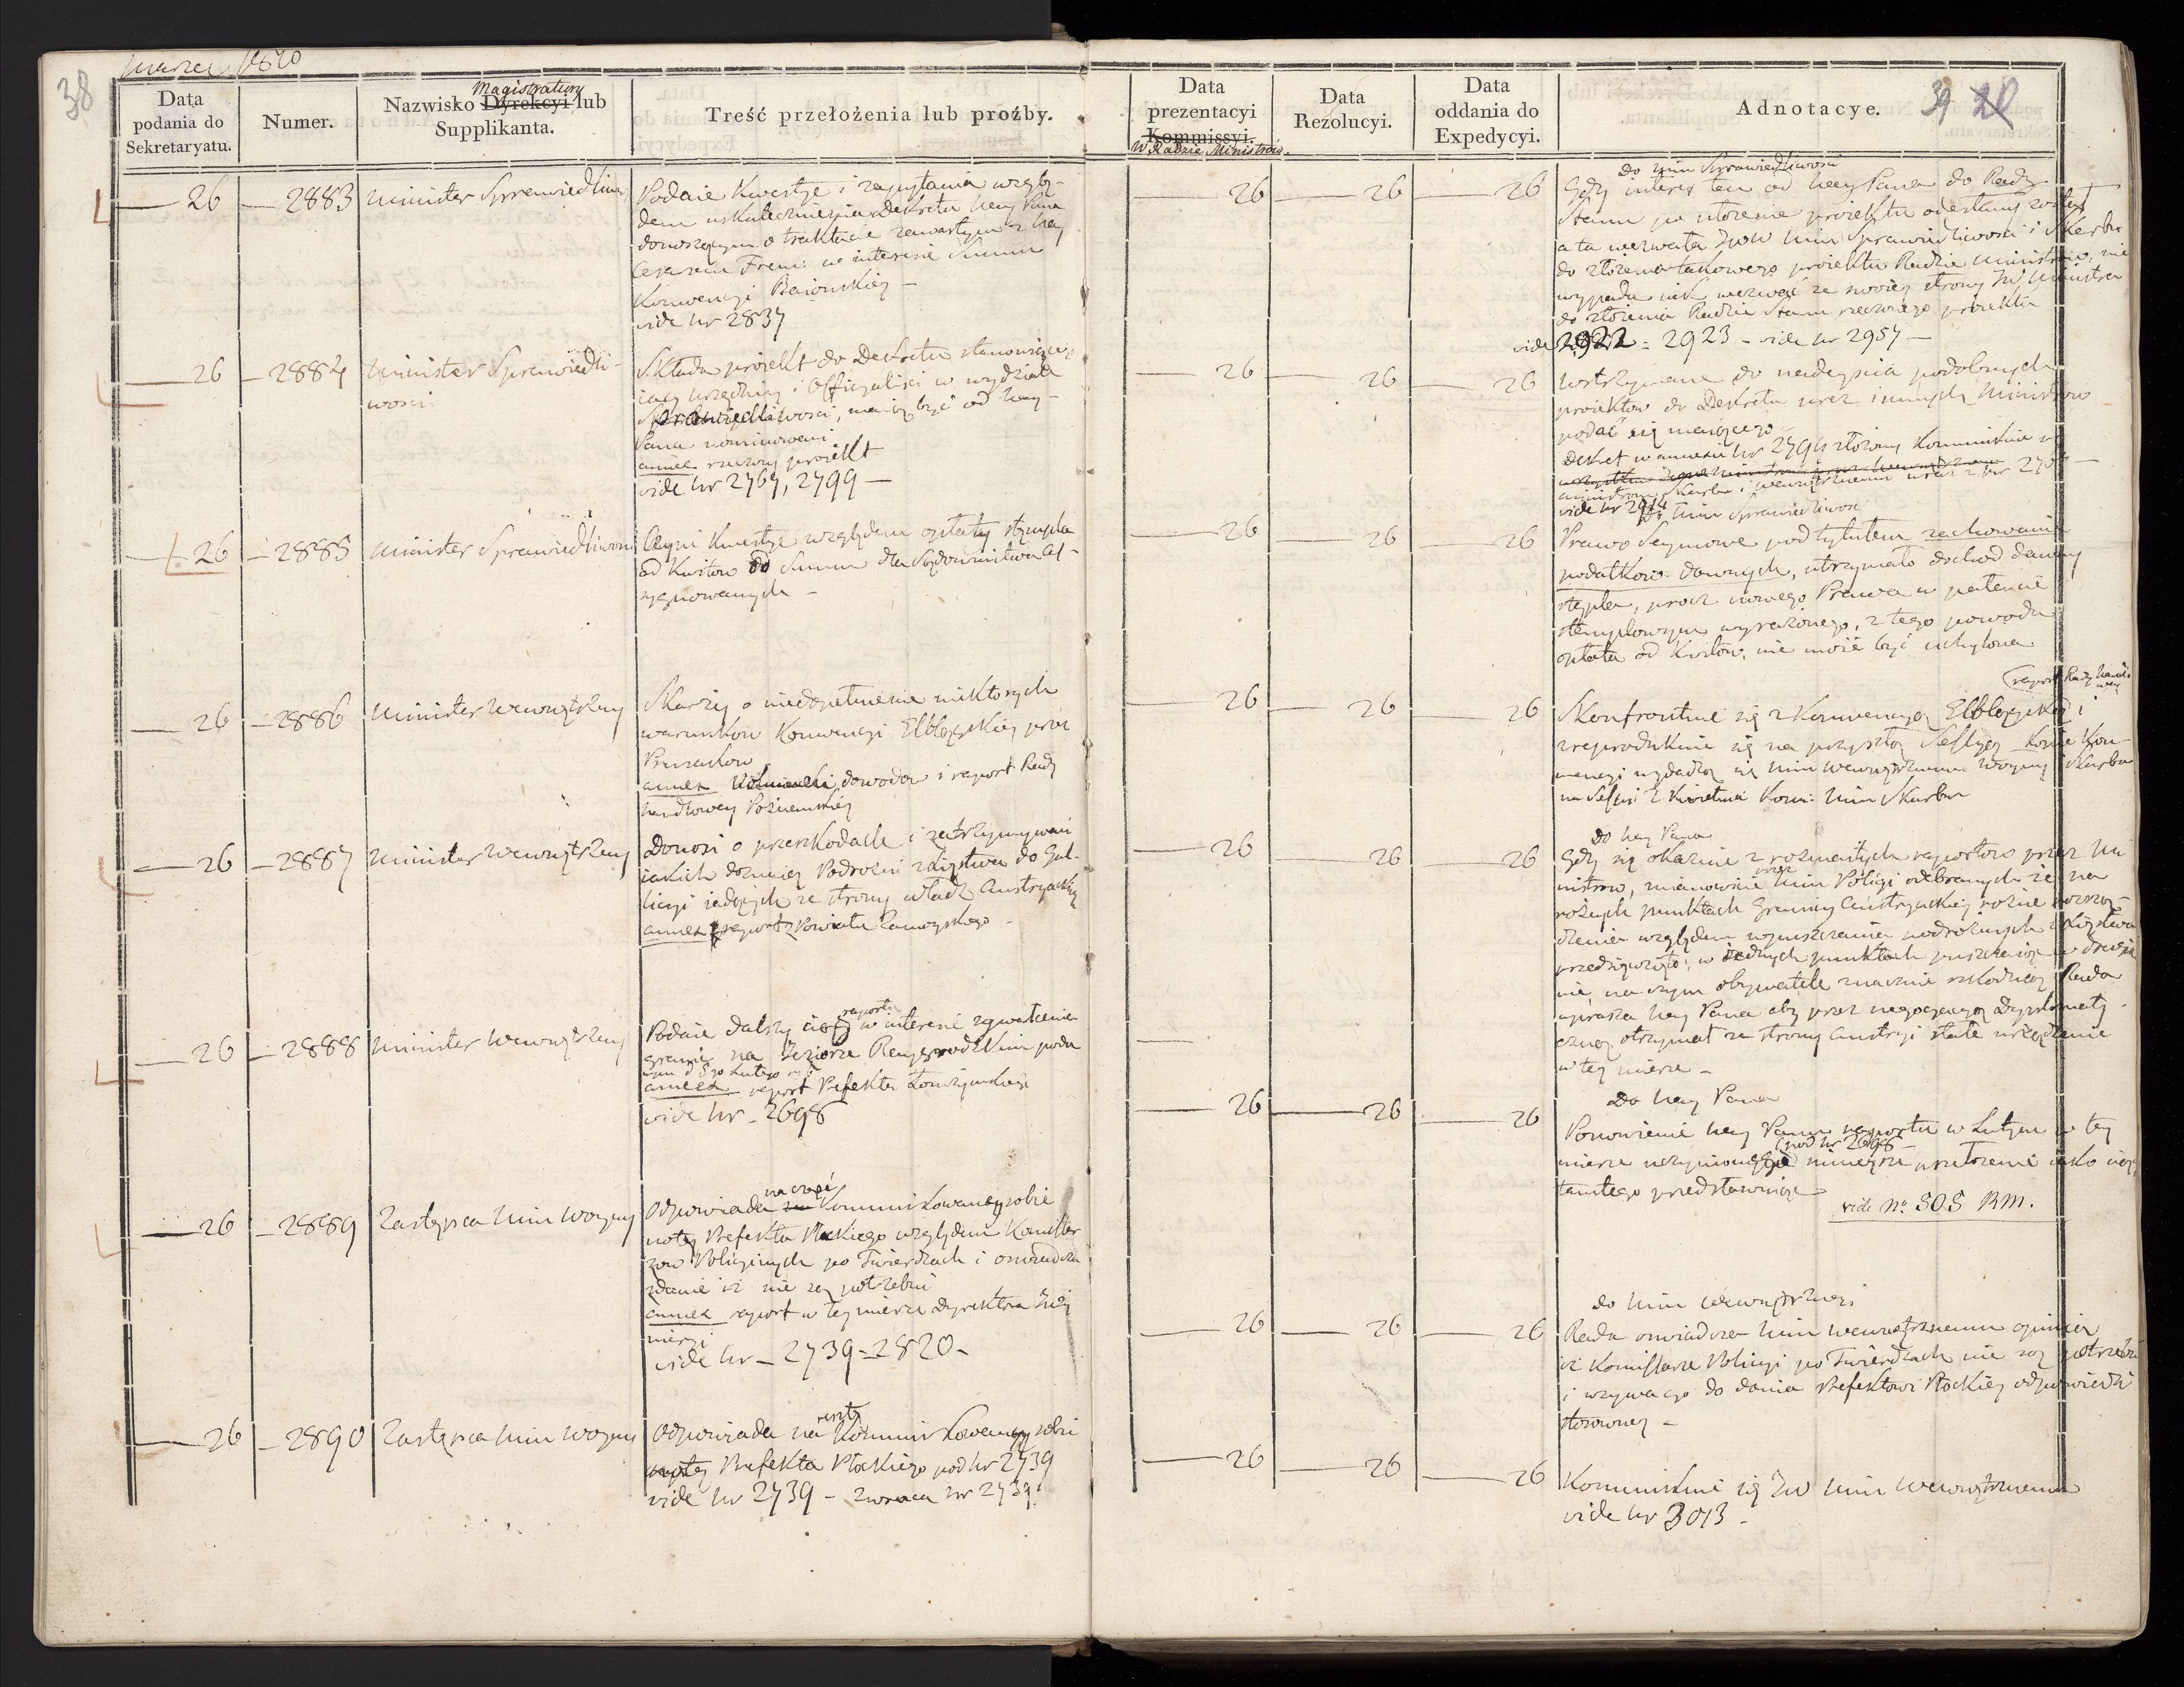 38
marzec 1810
Data podania do Sekretaryatu.
Numer.
Magistratury
Nazwisko Dyrekcyi lub Supplikanta.
Treść przełożenia lub proźby.
Data prezentacyi Kommissyi.
W Radzie Ministrów.
Data Rezolucyi.
Data oddania do Expedycyi.
Adnotacye.
39 20
26 — 2883 Minister Sprawiedliwo
Podaie Kwestye i zapytania wzglę-
dem uskutecznienia Dekretu Nay Pana
donoszącym o traktacie zawartym z Nay
Cesarzem Franc: w interesie Summ
Konwencyi Baiońskiey —
vide Nr 2837
26 26 26
do Min Sprawiedliwości
Gdy interes ten od Nay Pana do Rady
Stanu po ułożenie proiektu odesłany został
a ta wezwała JWW Min Sprawiedliwości i Skarbu
do złożenia takowego proiektu Radzie Ministrów, nie
wypada iak wezwać ze swoiey strony JW Ministra
do złożenia Radzie Stanu rzeczonego proiektu
vide 2922 = 2923 — vide Nr 2957 —
26 — 2884 Minister Sprawiedli-
wości
Składa proiekt do Dekretu stanowiącego
iacy urzędnicy i Officyaliści w wydziale
Sprawiedliwości, maią być od Nay-
Pana nominowani
annex rzeczony proiekt
vide Nr 2767, 2799 —
26 26 26
wstrzymane do nadeyścia podobnych
proiektow do Dekretu przez innych Ministrów
podać się maiącego
Dekret w annexie Nr 2794 złożony Kommunikuie się
Ministrom Skarbu i wewnętrznemu wraz z Nr 2767 —
vide Nr 2914
26 — 2885 Minister Sprawiedliwości
Czyni Kwestye względem opłaty stępla
od Kwitow do Summ dla Sądownictwa As-
sygnowanych —
26 26 26
Do Min Sprawiedliwości
Prawo Seymowe pod tytułem zachowanie
podatkow dawnych, utrzymało dochod dawny
stępla, procz nowego Prawa w patencie
stemplowym wyrażonego, z tego powodu
opłata od Kwitow, nie może być uchylona
26 — 2886 Minister Wewnętrzny
Skarży o niedopełnienie niektorych
warunkow Konwencyi Elbląskiey przez
Prusakow
annex dowodow i raport Rady
handlowey Poznańskiey
26 26 26
(raport Rady handlo
wey
Skonfrontuie się z Konwencyą Elbląską i
zreprodukuie się na przyszłą Sessyą Kopie Kon-
wencyi wydadzą się Min Wewnętrznemu Woyny i Skarbu
na Sessyi 2 Kwietnia Kom: Min Skarbu
26 — 2887 Minister Wewnętrzny
Donosi o przeszkodach i zatrzymywani
iakich doznaią Podrożni z Xięstwa do Gal-
licyi iadących ze strony władz Austryackiey
annex raport z Powiatu Zamoyskiego —
26 26 26
do Nay Pana
Gdy się okazuie z rozmaitych raportow przez Mi
nistrow, mianowicie przez Min Policyi odebranych że na
rożnych punktach Granicy Austryackiey rożne rozrzą-
dzenia względem wpuszczania podrożnych z Xięstwa
przedsięwzięto, w iednych punktach puszczaią w drugich
nie, na czym obywatele znacznie szkodzią Rada
uprasza Nay Pana aby przez negocyacyą Dyplomaty-
czną otrzymał ze strony Austryi stałe urządzenie
w tey mierze —
26 — 2888 Minister Wewnętrzny
Podaie dalszy ciąg raportu w interesie zgwałcenia
granic na Jeziorze Raygrodzkim poda
nym d 8go Lutego r. b.
annex raport Prefekta Łomżyńskiego
vide Nr — 2698
26 26 26
Do Nay Pana
Ponowienie Nay Panu raportu w Lutym w tey
mierze uczynionego (pod Nr 2698 — ninieysze przełożenie iako ciąg
tamtego przedstawuiąc
vide No 505 RM.
26 — 2889 Zastępca Min Woyny
Odpowiada na część Kommunikowaney sobie
noty Prefekta Płockiego względem Komissa
rzow Policyinych po Twierdzach i oswiadcza
zdanie iż nie są potrzebni
annex raport w tey mierze Dyrektora Inży
nieryi
vide Nr — 2739 = 2820 —
26 26 26
do Min Wewnętrznego
Rada oswiadcza Min Wewnętrznemu opinią
iż Komissarze Policyi po Twierdzach nie są potrzebni
i wzywa go do dania Prefektowi Płockiey odpowiedzi
stosowney —
26 — 2890 Zastępca Min Woyny
Odpowiada na resztę Kommunikowaney sobie
noty Prefekta Płockiego pod Nr 2739
vide Nr 2739 — zwraca Nr 2739.
26 26 26
Kommunikuie się JW Min Wewnętrznemu
vide Nr 3013 —